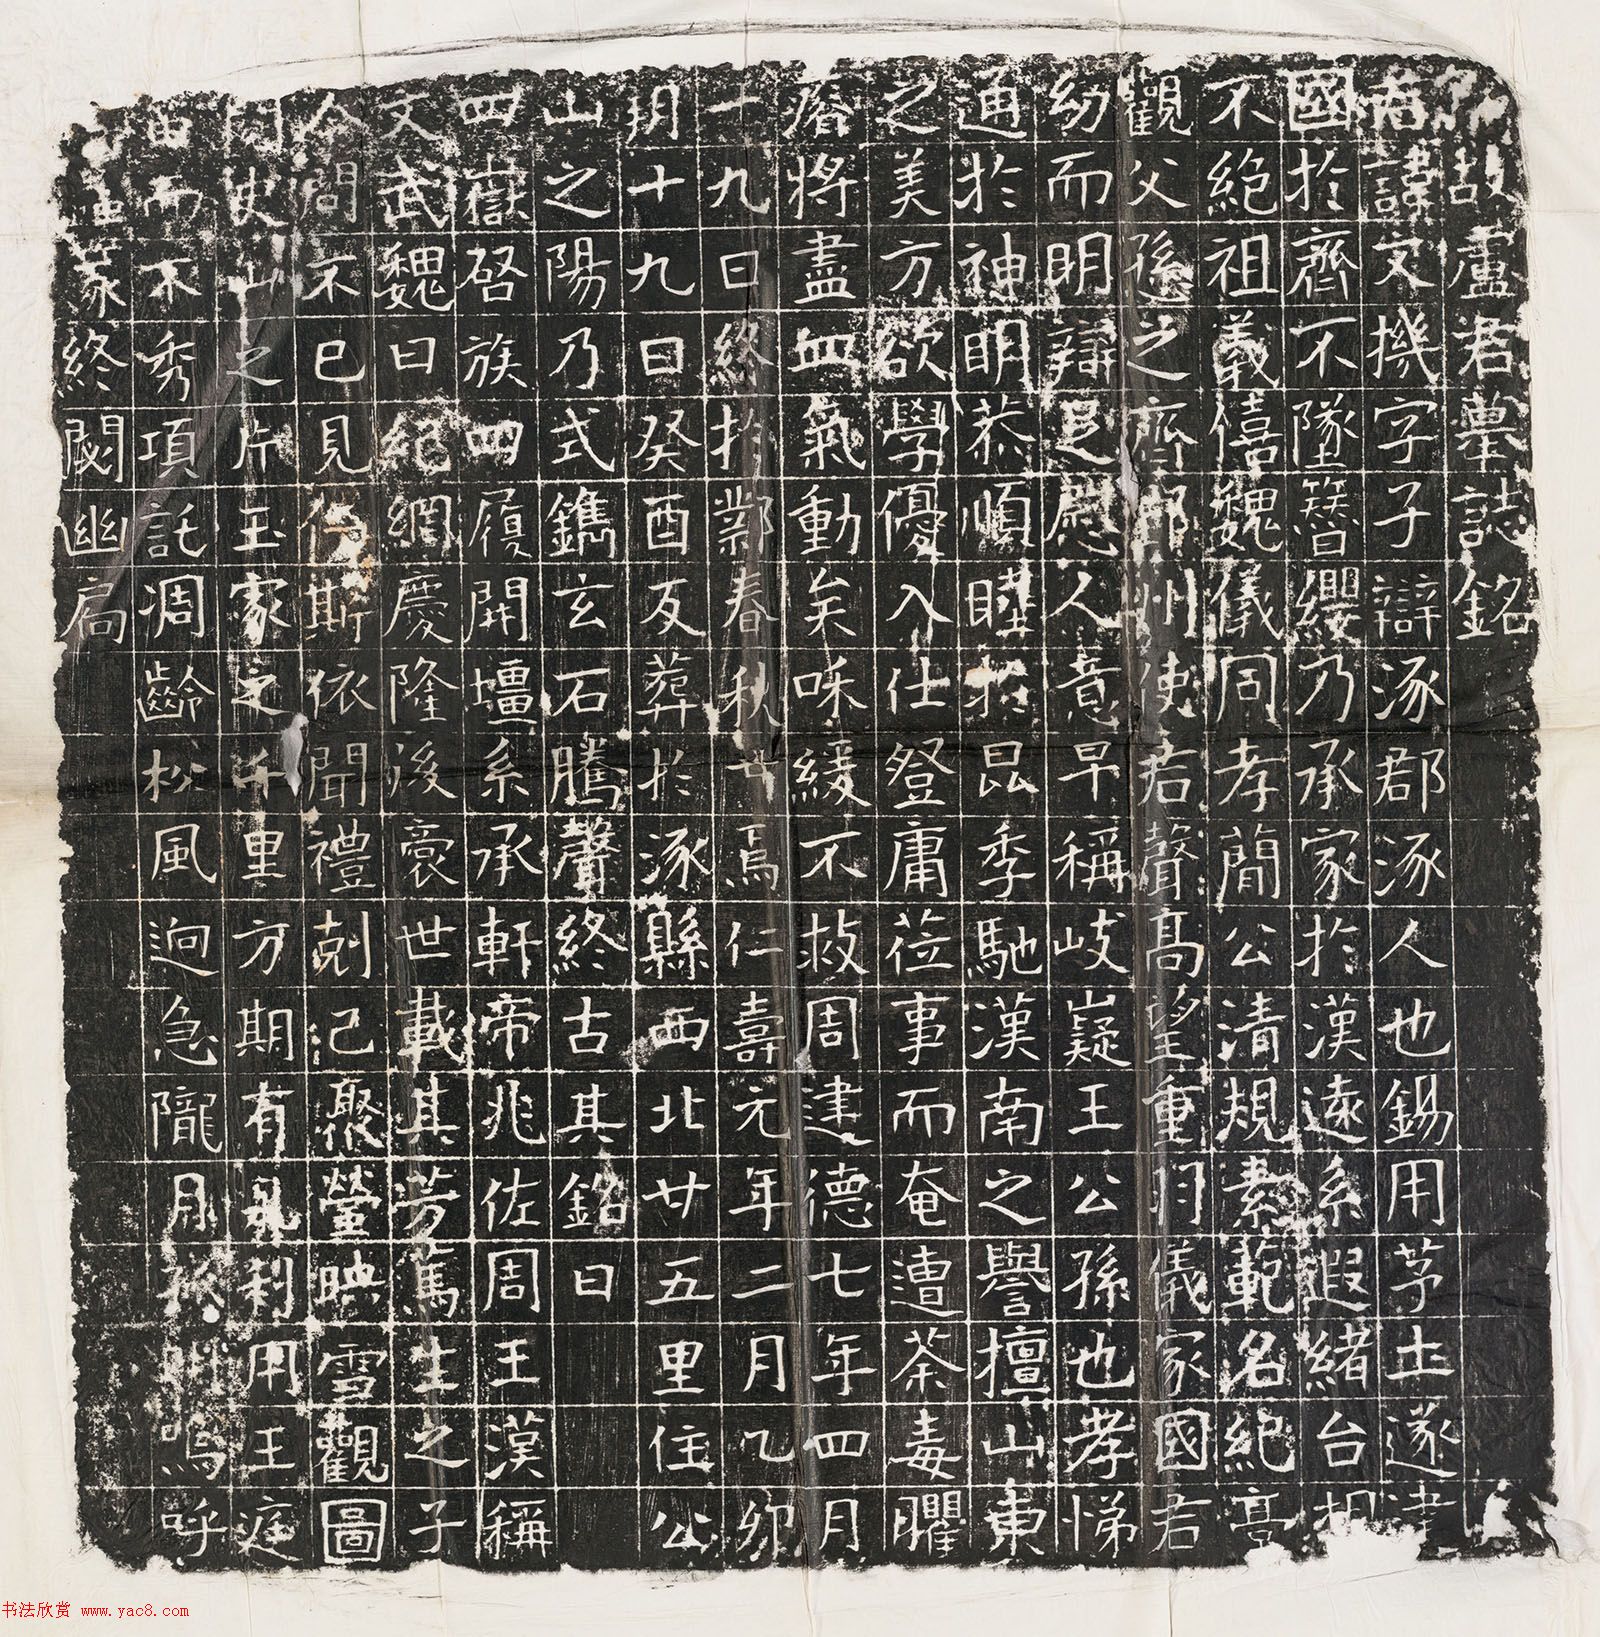 故盧君墓誌銘
君諱文機字子辯涿郡涿人也錫用茅土遂津
國於齊不墜簪纓乃承家於漢遠系遐緒台相
不絕祖義僖魏儀同孝簡公清規素範名紀亭
觀父遜之齊郢州使君聲高望重羽儀家國君
幼而明辯足慰人意早稱岐嶷王公孫也孝悌
通於神明恭順睦於昆季馳漢南之譽擅山東
之美方欲學優入仕登庸莅事而奄遭荼毒臞
瘠將盡血氣動矣味緩不救周建德七年四月
十九日終於鄴春秋廿焉仁壽元年二月乙卯
朔十九日癸酉反葬於涿縣西北廿五里住公
山之陽乃式鐫玄石騰聲終古其銘曰
四嶽啓族四履開壃系承軒帝兆佐周王漢稱
文武魏曰紀網慶隆後裔世載其芳篤生之子
令問不已見仁斯依聞禮剋己聚螢映雪觀圖
閱史山之片玉家之千里方期有永利用王庭
苗而不秀項託凋齡松風逈急隴月孤明嗚呼
篆終閟幽扃
书法欣赏 www.yac8.com